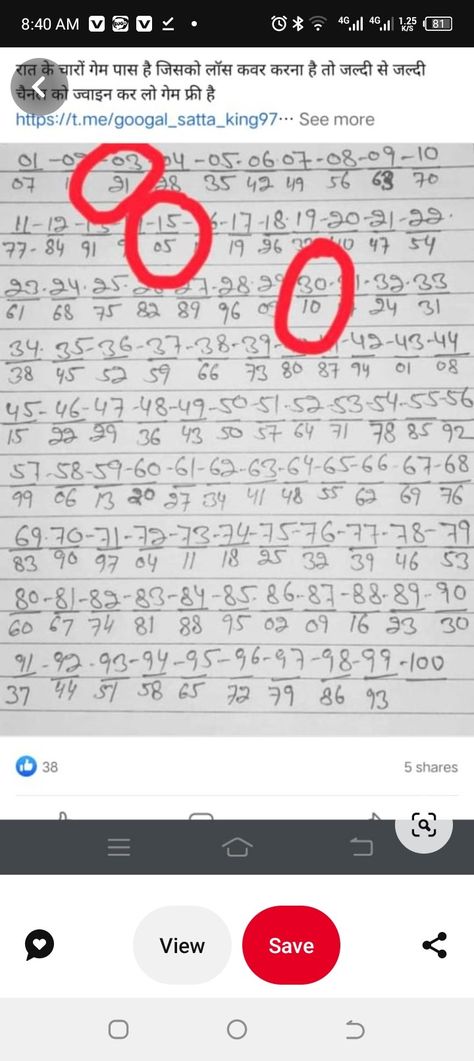 8:40 AM
4G 4G 1.25 K/S 81
रात के चारों गेम पास है जिसको लॉस कवर करना है तो जल्दी से जल्दी
चैनल को ज्वाइन कर लो गेम फ्री है
https://t.me/googal_satta_king97… See more
01 - 03 04 - 05 - 06 07 - 08 - 09 - 10
07 21 28 35 42 49 56 63 70
11 - 12 - 15 - 17 - 18 - 19 - 20 - 21 - 22
77 - 84 91 05 19 26 47 54
23 - 24 - 25 - 27 - 28 - 30 - 32 - 33
61 68 75 82 89 96 10 24 31
34 - 35 - 36 - 37 - 38 - 39 - 42 - 43 - 44
38 45 52 59 66 73 80 87 94 01 08
45 - 46 - 47 - 48 - 49 - 50 - 51 - 52 - 53 - 54 - 55 - 56
15 22 29 36 43 50 57 64 71 78 85 92
57 - 58 - 59 - 60 - 61 - 62 - 63 - 64 - 65 - 66 - 67 - 68
99 06 13 20 27 34 41 48 55 62 69 76
69 - 70 - 71 - 72 - 73 - 74 - 75 - 76 - 77 - 78 - 79
83 90 97 04 11 18 25 32 39 46 53
80 - 81 - 82 - 83 - 84 - 85 - 86 - 87 - 88 - 89 - 90
60 67 74 81 88 95 02 09 16 23 30
91 - 92 - 93 - 94 - 95 - 96 - 97 - 98 - 99 - 100
37 44 51 58 65 72 79 86 93
38 5 shares
View Save